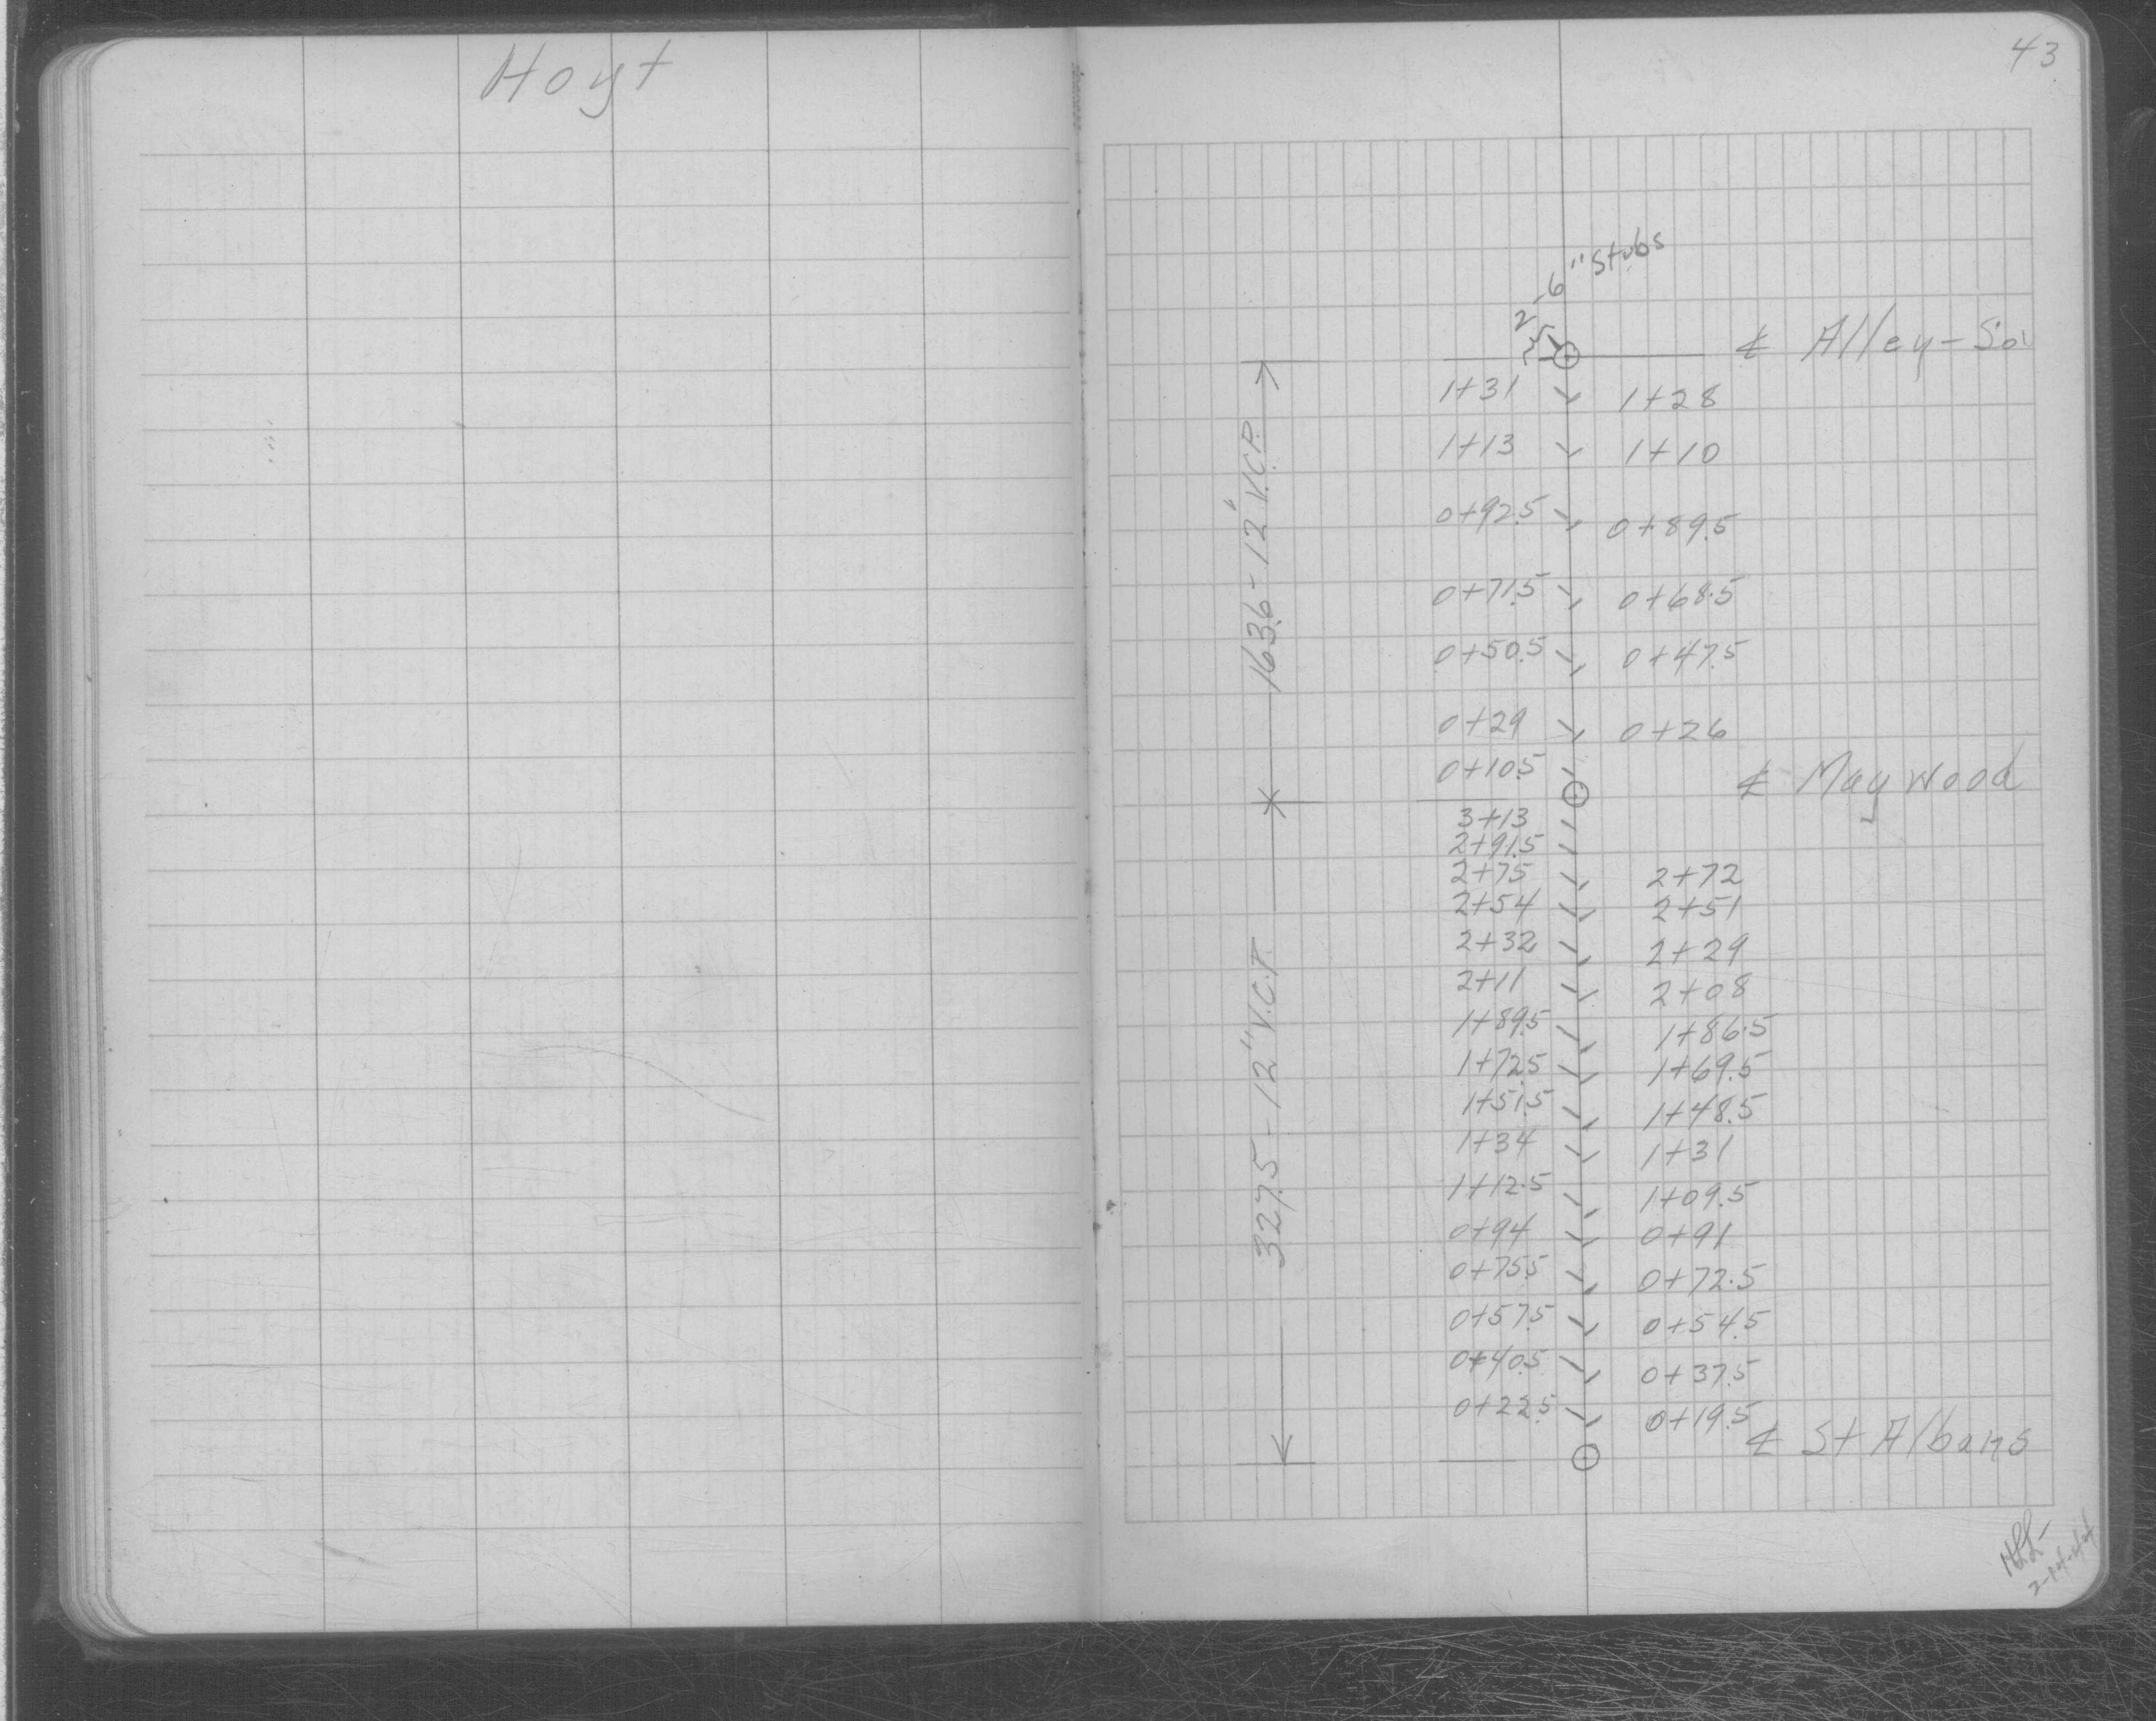 Hoyt
43
2-6" Stubs
℄ Alley-So.
1+31 1+28
1+13 1+10
0+92.5 0+89.5
0+71.5 0+68.5
0+50.5 0+47.5
0+29 0+26
0+10.5
163.6-12" V.C.P.
℄ Maywood
3+13
2+91.5
2+75 2+72
2+54 2+51
2+32 2+29
2+11 2+08
1+89.5 1+86.5
1+72.5 1+69.5
1+51.5 1+48.5
1+34 1+31
1+12.5 1+09.5
0+94 0+91
0+75.5 0+72.5
0+57.5 0+54.5
0+40.5 0+37.5
0+22.5 0+19.5
327.5-12" V.C.P.
℄ St Albans